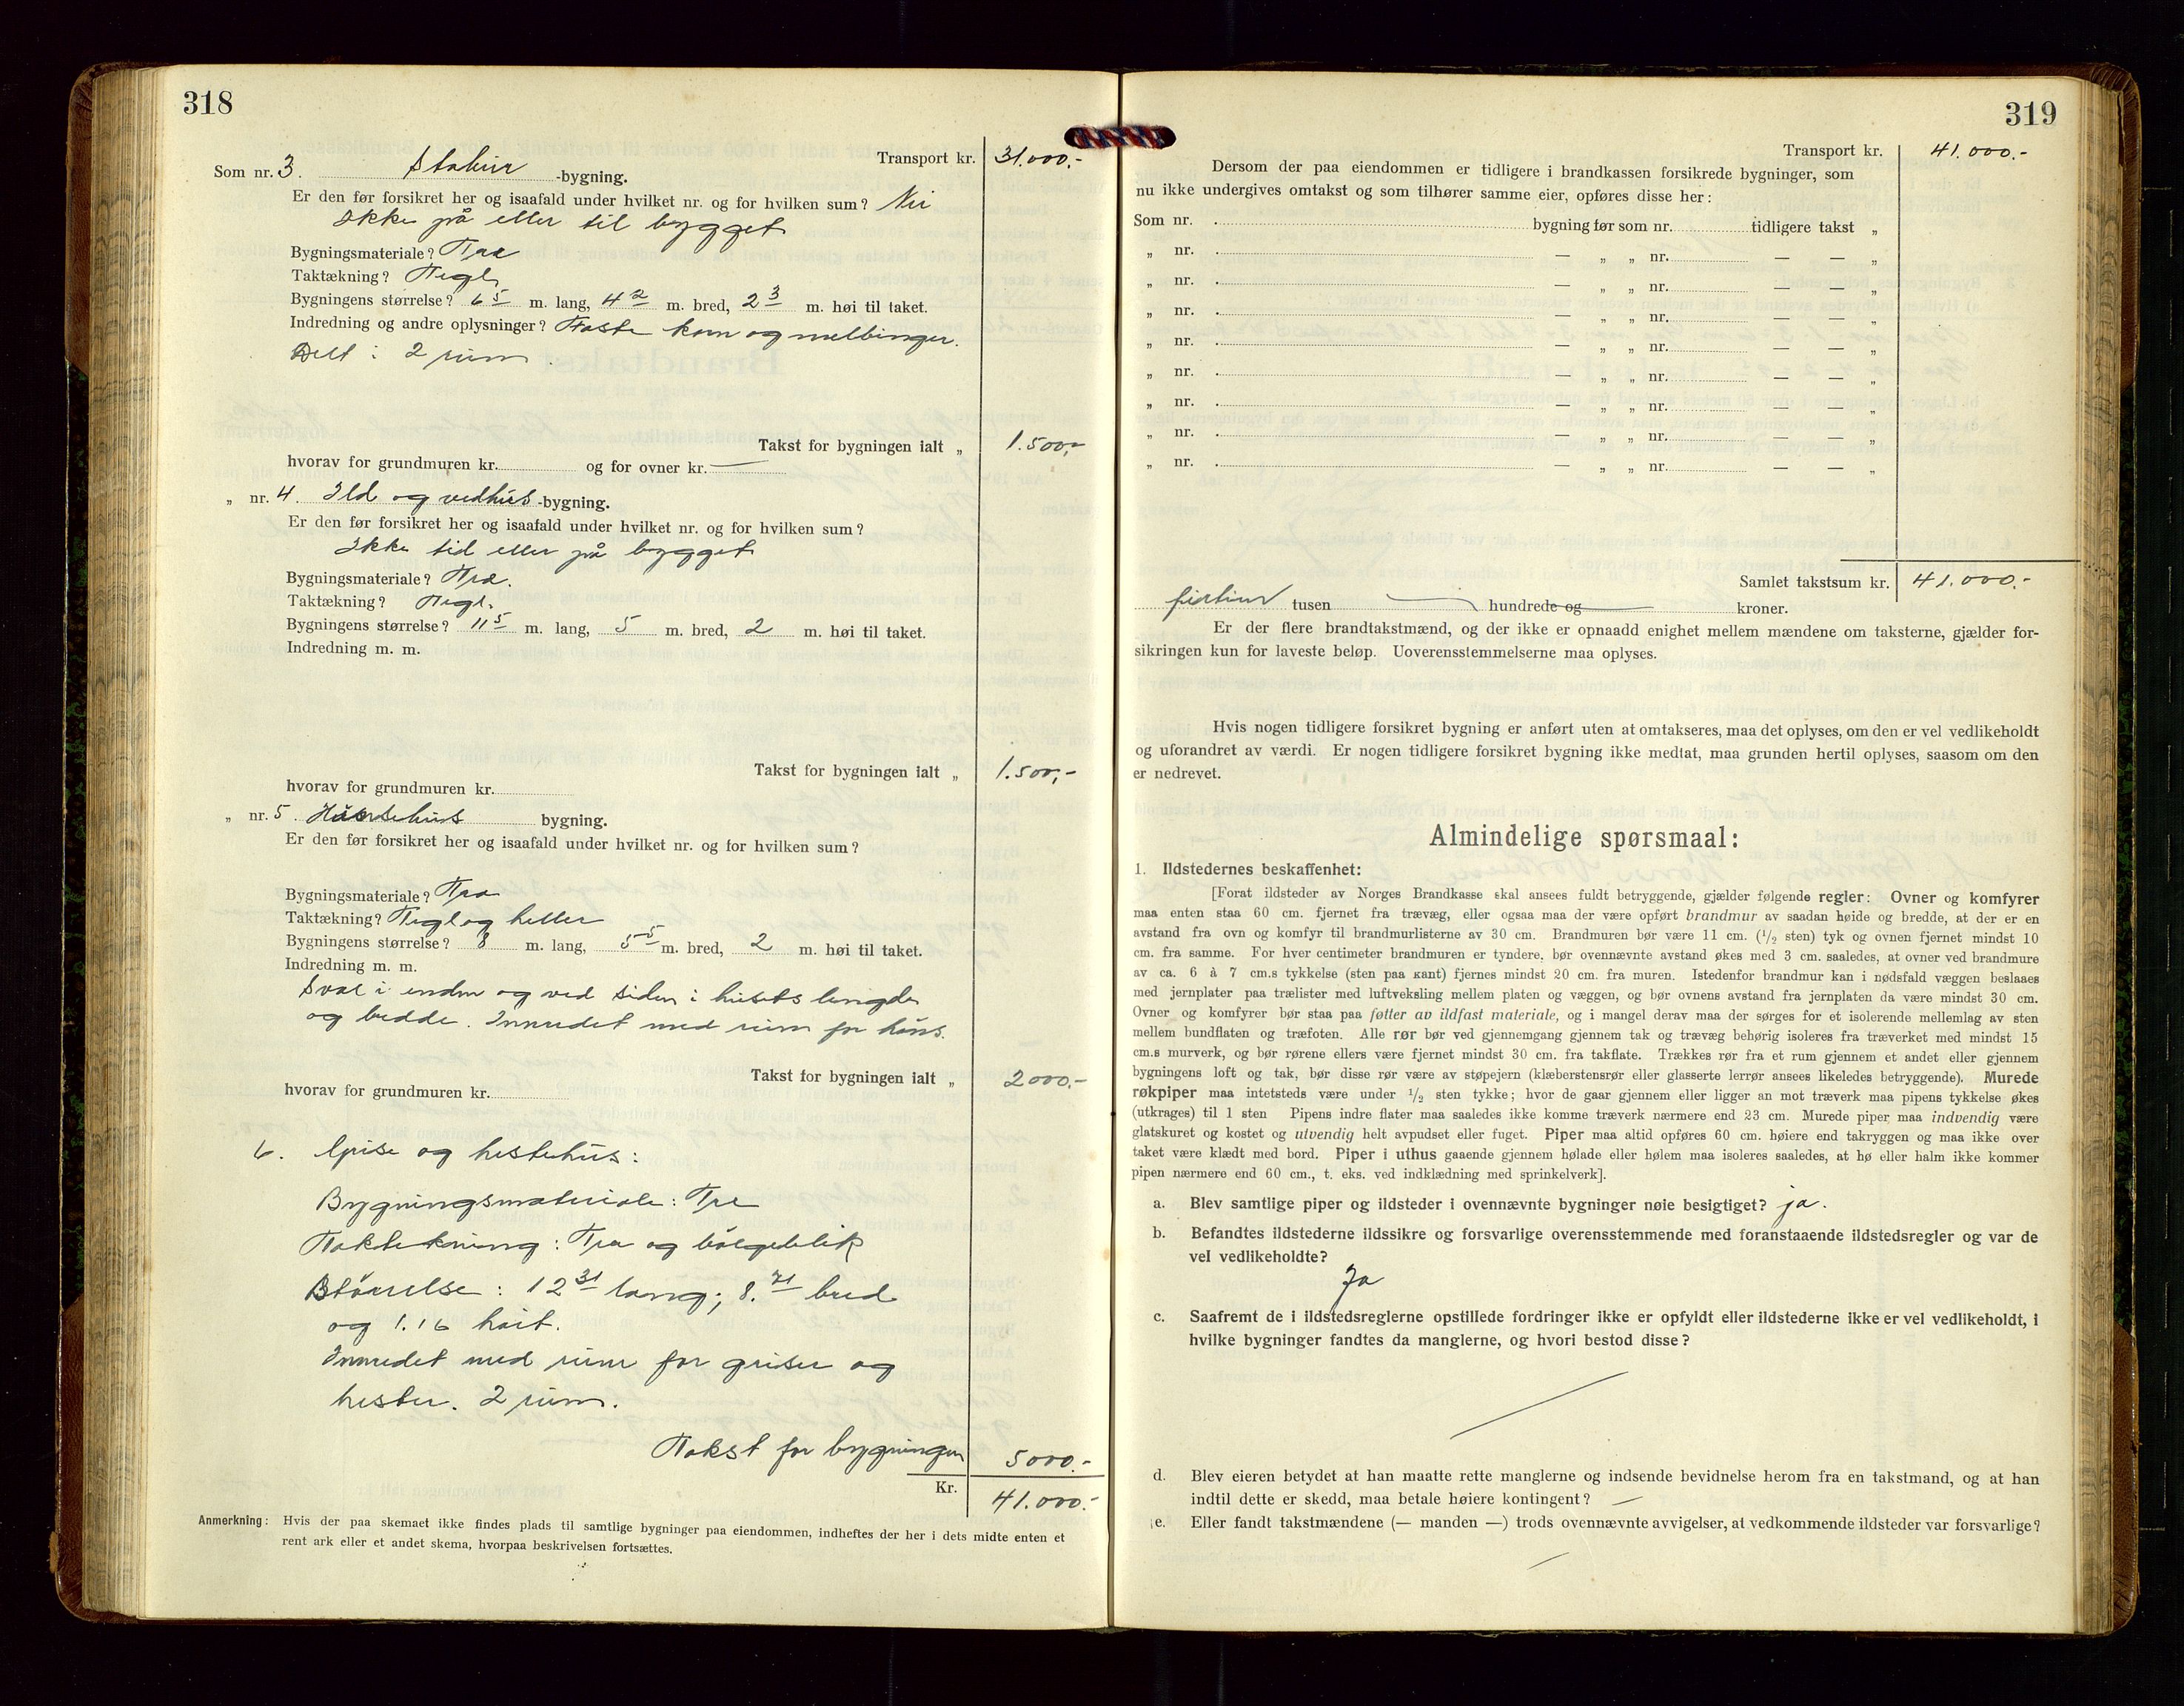 318
Transport kr. 31.000.-
Som nr. 3. Stabur -bygning.
Er den før forsikret her og isaafald under hvilket nr. og for hvilken sum? Nei
Ikke på eller til bygget
Bygningsmateriale? Træ
Taktækning? Tegl
Bygningens størrelse? 6 5 m. lang, 4 2 m. bred, 2 3 m. høi til taket.
Indredning og andre oplysninger? Faste korn og melbinger.
Delt i 2 rum
Takst for bygningen ialt „ 1.500,-
hvorav for grundmuren kr. og for ovner kr. —
„ nr. 4. Ild og vedhus -bygning.
Er den før forsikret her og isaafald under hvilket nr. og for hvilken sum?
Ikke tid eller på bygget
Bygningsmateriale? Træ.
Taktækning? Tegl.
Bygningens størrelse? 11 5 m. lang, 5 m. bred, 2 m. høi til taket.
Indredning m. m.
Takst for bygningen ialt „ 1.500,-
hvorav for grundmuren kr.
„ nr. 5. bygning.
Er den før forsikret her og isaafald under hvilket nr. og for hvilken sum?
Bygningsmateriale? Træ
Taktækning? Tegl og heller
Bygningens størrelse? 8 m. lang, 5 5 m. bred, 2 m. høi til taket.
Indredning m. m.
Sval i enden og ved siden i husets lengde
og bredde. Innredet med rum for høns.
Takst for bygningen ialt „ 2000.-
hvorav for grundmuren kr.
6. og hestehus:
Bygningsmateriale: Tre
Taktekning: Tre og bölgeblik
Störrelse: 12 31 lang; 8. 71 bred
og 1.16 höit.
Innredet med rum for griser og
hester. 2 rum.
Takst for bygningen 5000.-
Kr. 41.000.-
Anmerkning: Hvis der paa skemaet ikke findes plads til samtlige bygninger paa eiendommen, indheftes der her i dets midte enten et
rent ark eller et andet skema, hvorpaa beskrivelsen fortsættes.
319
Transport kr. 41.000.-
Dersom der paa eiendommen er tidligere i brandkassen forsikrede bygninger, som
nu ikke undergives omtakst og som tilhører samme eier, opføres disse her:
Som nr. bygning før som nr. tidligere takst „
„ nr. — „ „ nr. — — „
„ nr. — „ „ nr. — — „
„ nr. — „ „ nr. — — „
„ nr. — „ „ nr. — — „
„ nr. — „ „ nr. — — „
„ nr. — „ „ nr. — — „
„ nr. — „ „ nr. — — „
„ nr. — „ „ nr. — — „
Samlet takstsum kr. 41.000.-
tusen — hundrede og — kroner.
Er der flere brandtakstmænd, og der ikke er opnaadd enighet mellem mændene om taksterne, gjælder for-
sikringen kun for laveste beløp. Uoverensstemmelserne maa oplyses.
Hvis nogen tidligere forsikret bygning er anført uten at omtakseres, maa det oplyses, om den er vel vedlikeholdt
og uforandret av værdi. Er nogen tidligere forsikret bygning ikke medtat, maa grunden hertil oplyses, saasom om den
er nedrevet.
Almindelige spørsmaal:
1. Ildstedernes beskaffenhet:
[Forat ildsteder av Norges Brandkasse skal ansees fuldt betryggende, gjælder følgende regler: Ovner og komfyrer
maa enten staa 60 cm. fjernet fra trævæg, eller ogsaa maa der være opført brandmur av saadan høide og bredde, at der er en
avstand fra ovn og komfyr til brandmurlisterne av 30 cm. Brandmuren bør være 11 cm. (1/2 sten) tyk og ovnen fjernet mindst 10
cm. fra samme. For hver centimeter brandmuren er tyndere, bør ovennævnte avstand økes med 3 cm. saaledes, at ovner ved brandmure
av ca. 6 à 7 cm.s tykkelse (sten paa kant) fjernes mindst 20 cm. fra muren. Istedenfor brandmur kan i nødsfald væggen beslaaes
med jernplater paa trælister med luftveksling mellem platen og væggen, og bør ovnens avstand fra jernplaten da være mindst 30 cm.
Ovner og komfyrer bør staa paa føtter av ildfast materiale, og i mangel derav maa der sørges for et isolerende mellemlag av sten
mellem bundflaten og træfoten. Alle rør bør ved gjennemgang gjennem tak og trævæg behørig isoleres fra træverket med mindst 15
cm.s murverk, og bør rørene ellers være fjernet mindst 30 cm. fra takflate. Trækkes rør fra et rum gjennem et andet eller gjennem
bygningens loft og tak, bør disse rør være av støpejern (klæberstensrør eller glasserte lerrør ansees likeledes betryggende). Murede
røkpiper maa intetsteds være under 1/2 sten tykke; hvor de gaar gjennem eller ligger an mot træverk maa pipens tykkelse økes
(utkrages) til 1 sten Pipens indre flater maa saaledes ikke komme træverk nærmere end 23 cm. Murede piper maa indvendig være
glatskuret og kostet og utvendig helt avpudset eller fuget. Piper maa altid opføres 60 cm. høiere end takryggen og maa ikke over
taket være klædt med bord. Piper i uthus gaaende gjennem hølade eller hølem maa isoleres saaledes, at hø eller halm ikke kommer
pipen nærmere end 60 cm., t. eks. ved indklædning med sprinkelverk].
a. Blev samtlige piper og ildsteder i ovennævnte bygninger nøie besigtiget? ja.
b. Befandtes ildstederne ildssikre og forsvarlige overensstemmende med foranstaaende ildstedsregler og var de
vel vedlikeholdte?
Ja
c. Saafremt de i ildstedsreglerne opstillede fordringer ikke er opfyldt eller ildstederne ikke er vel vedlikeholdt, i
hvilke bygninger fandtes da manglerne, og hvori bestod disse?
d. Blev eieren betydet at han maatte rette manglerne og indsende bevidnelse herom fra en takstmand, og at han
indtil dette er skedd, maa betale høiere kontingent? —
e. Eller fandt takstmændene (— manden —) trods ovennævnte avvigelser, at vedkommende ildsteder var forsvarlige?
—